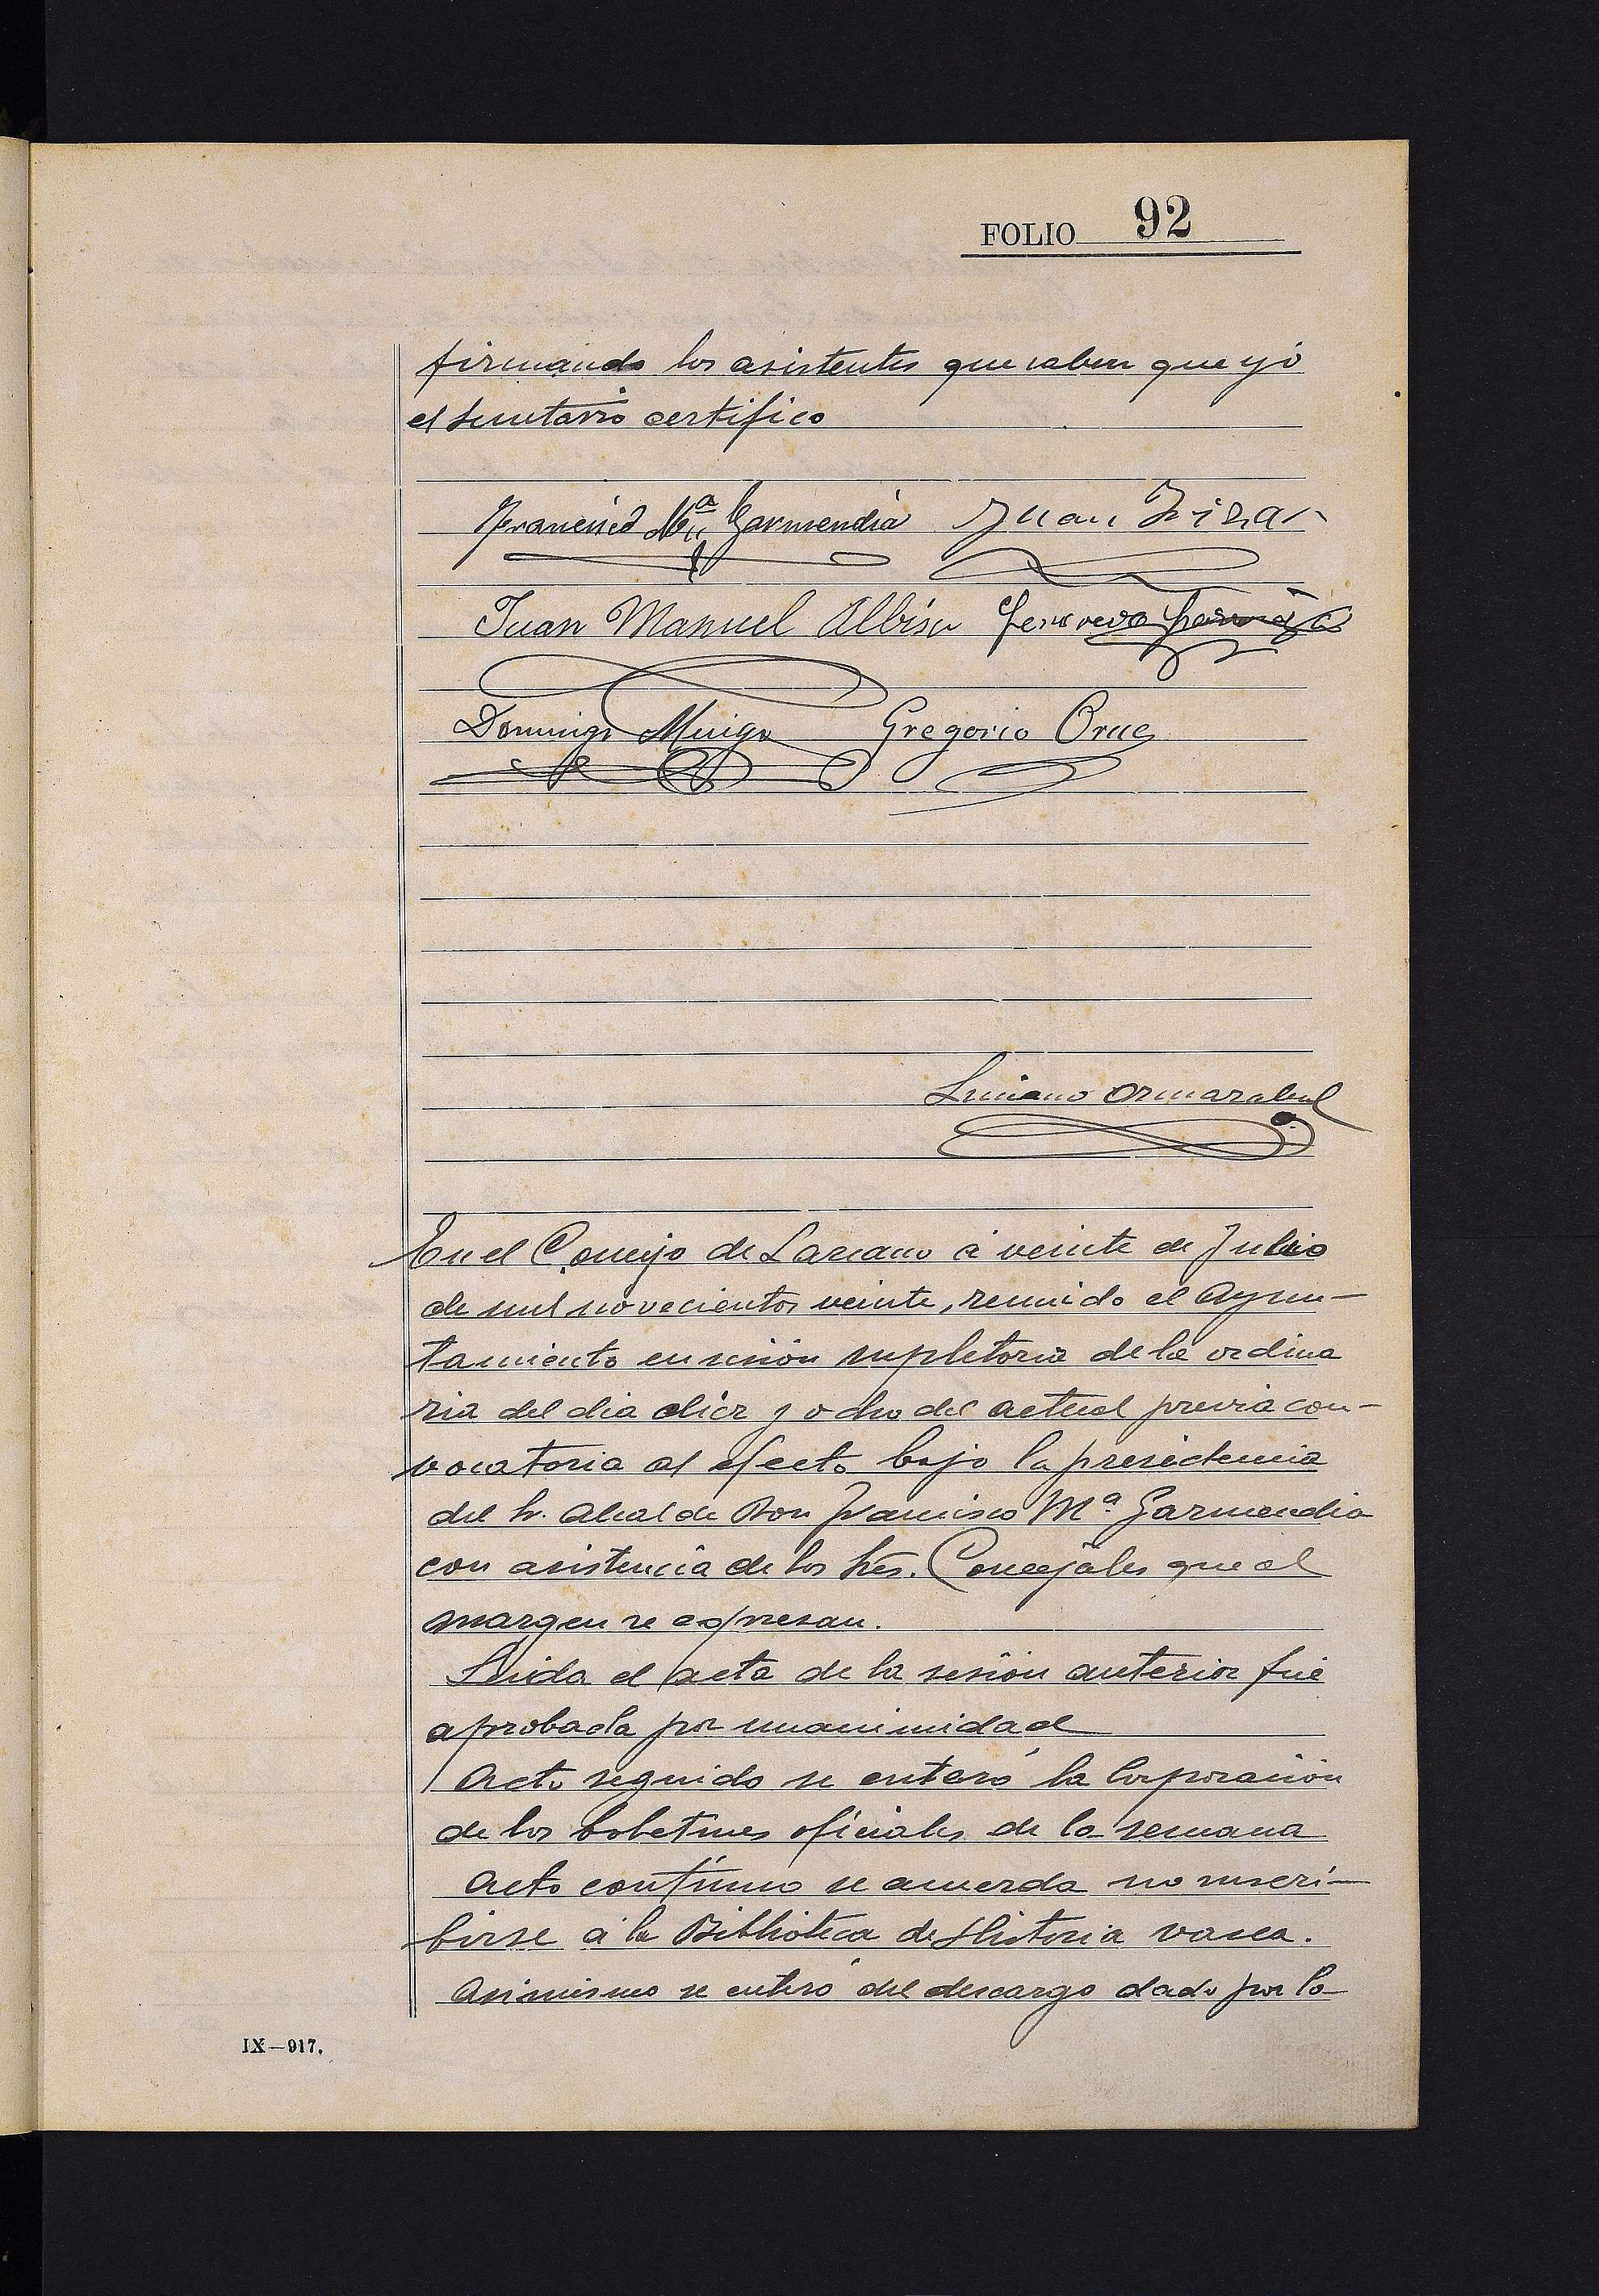 FOLIO 92
firmando los asistentes que saben que yo
el Secretario certifico
Francisco Mª Garmendia Juan
Juan Manuel Albisu
Domingo Gregorio
Luciano Ormazabal
En el Concejo de Lazcano á veinte de Julio
de mil novecientos veinte, reunido el Ayun-
tamiento en sesión supletoria de la ordina
ria del dia diez y ocho del actual previa con-
vocatoria al efecto bajo la presidencia
del Sr. Alcalde Don Francisco Mª. Garmendia
con asistencia de los Sres. Concejales que al
margen se expresan.
Leida el acta de la sesión anterior fué
aprobada por unanimidad
Acto seguido se enteró la Corporación
de los boletines oficiales de la semana
Acto contínuo se acuerda no suscri-
birse á la Biblioteca de Historia vasca.
Asimismo se enteró del descargo dado por la
IX—917.